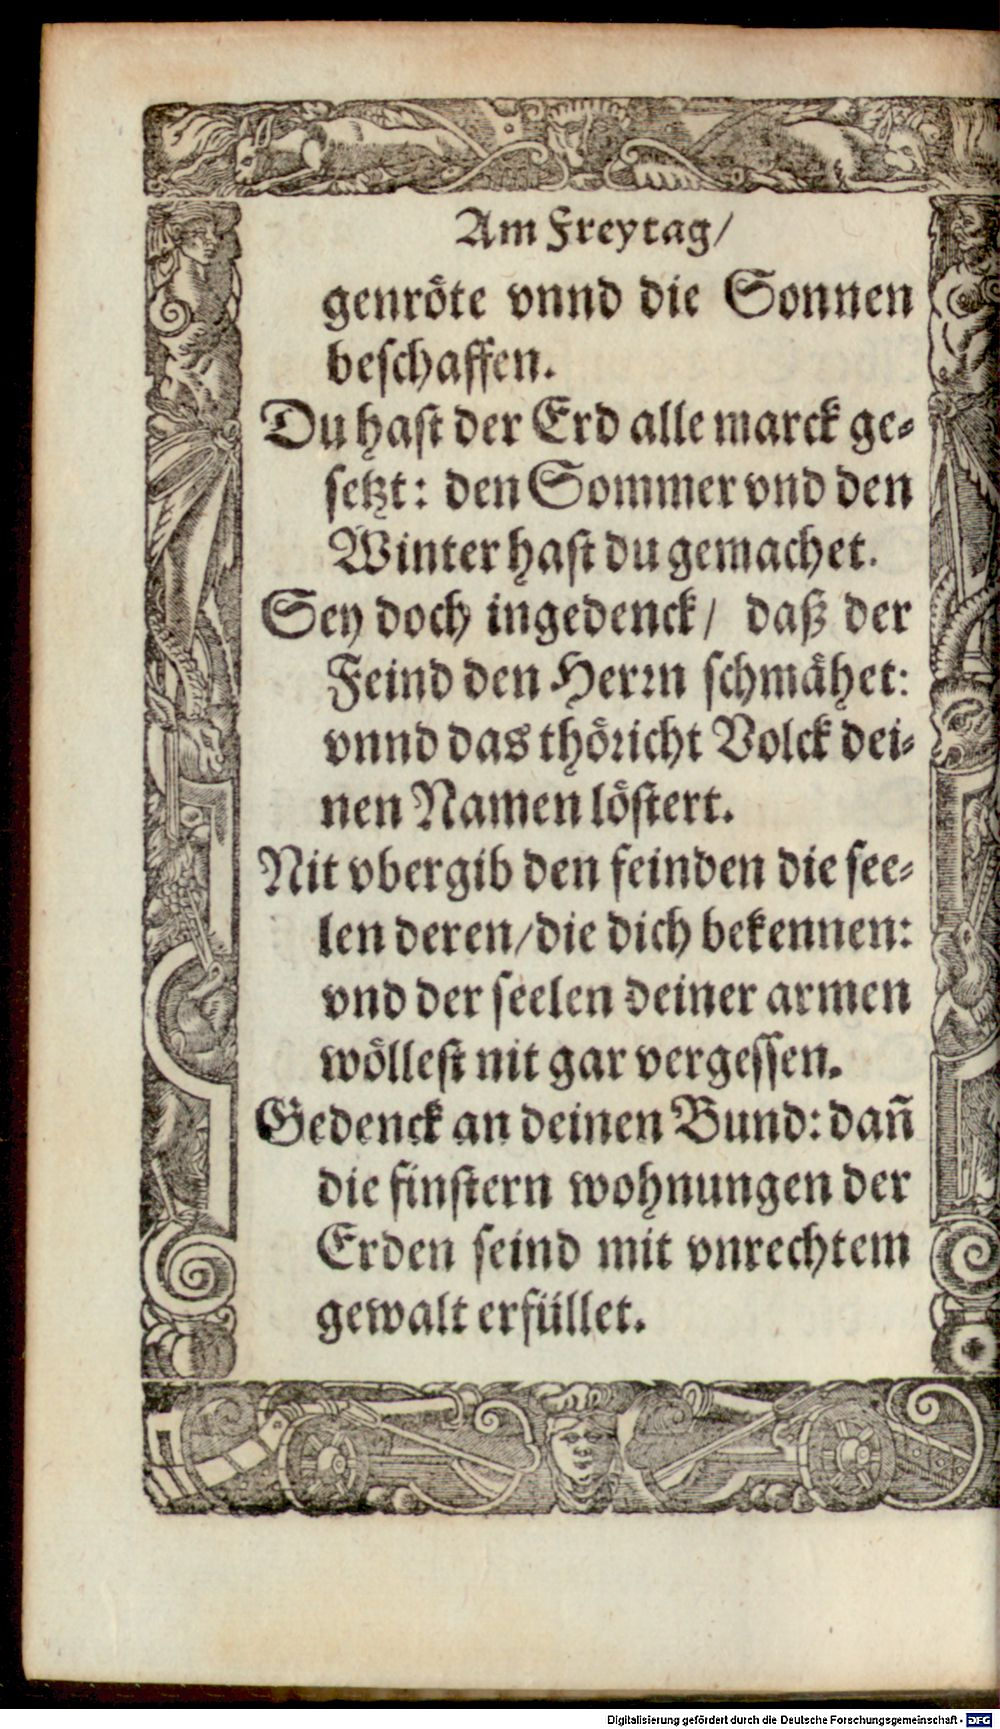 Am Freytag/
genröte vnnd die Sonnen
beschaffen.
Du hast der Erd alle marck ge⸗
setzt: den Sommer vnd den
Winter hast du gemachet.
Sey doch ingedenck/ daß der
Feind den Herrn schmähet:
vnnd das thöricht Volck dei⸗
nen Namen löstert.
Nit vbergib den feinden die see⸗
len deren/die dich bekennen:
vnd der seelen deiner armen
wöllest nit gar vergessen.
Gedenck an deinen Bund: dañ
die finstern wohnungen der
Erden seind mit vnrechtem
gewalt erfüllet.
Digitalisierung gefördert durch die Deutsche Forschungsgemeinschaft - DFG